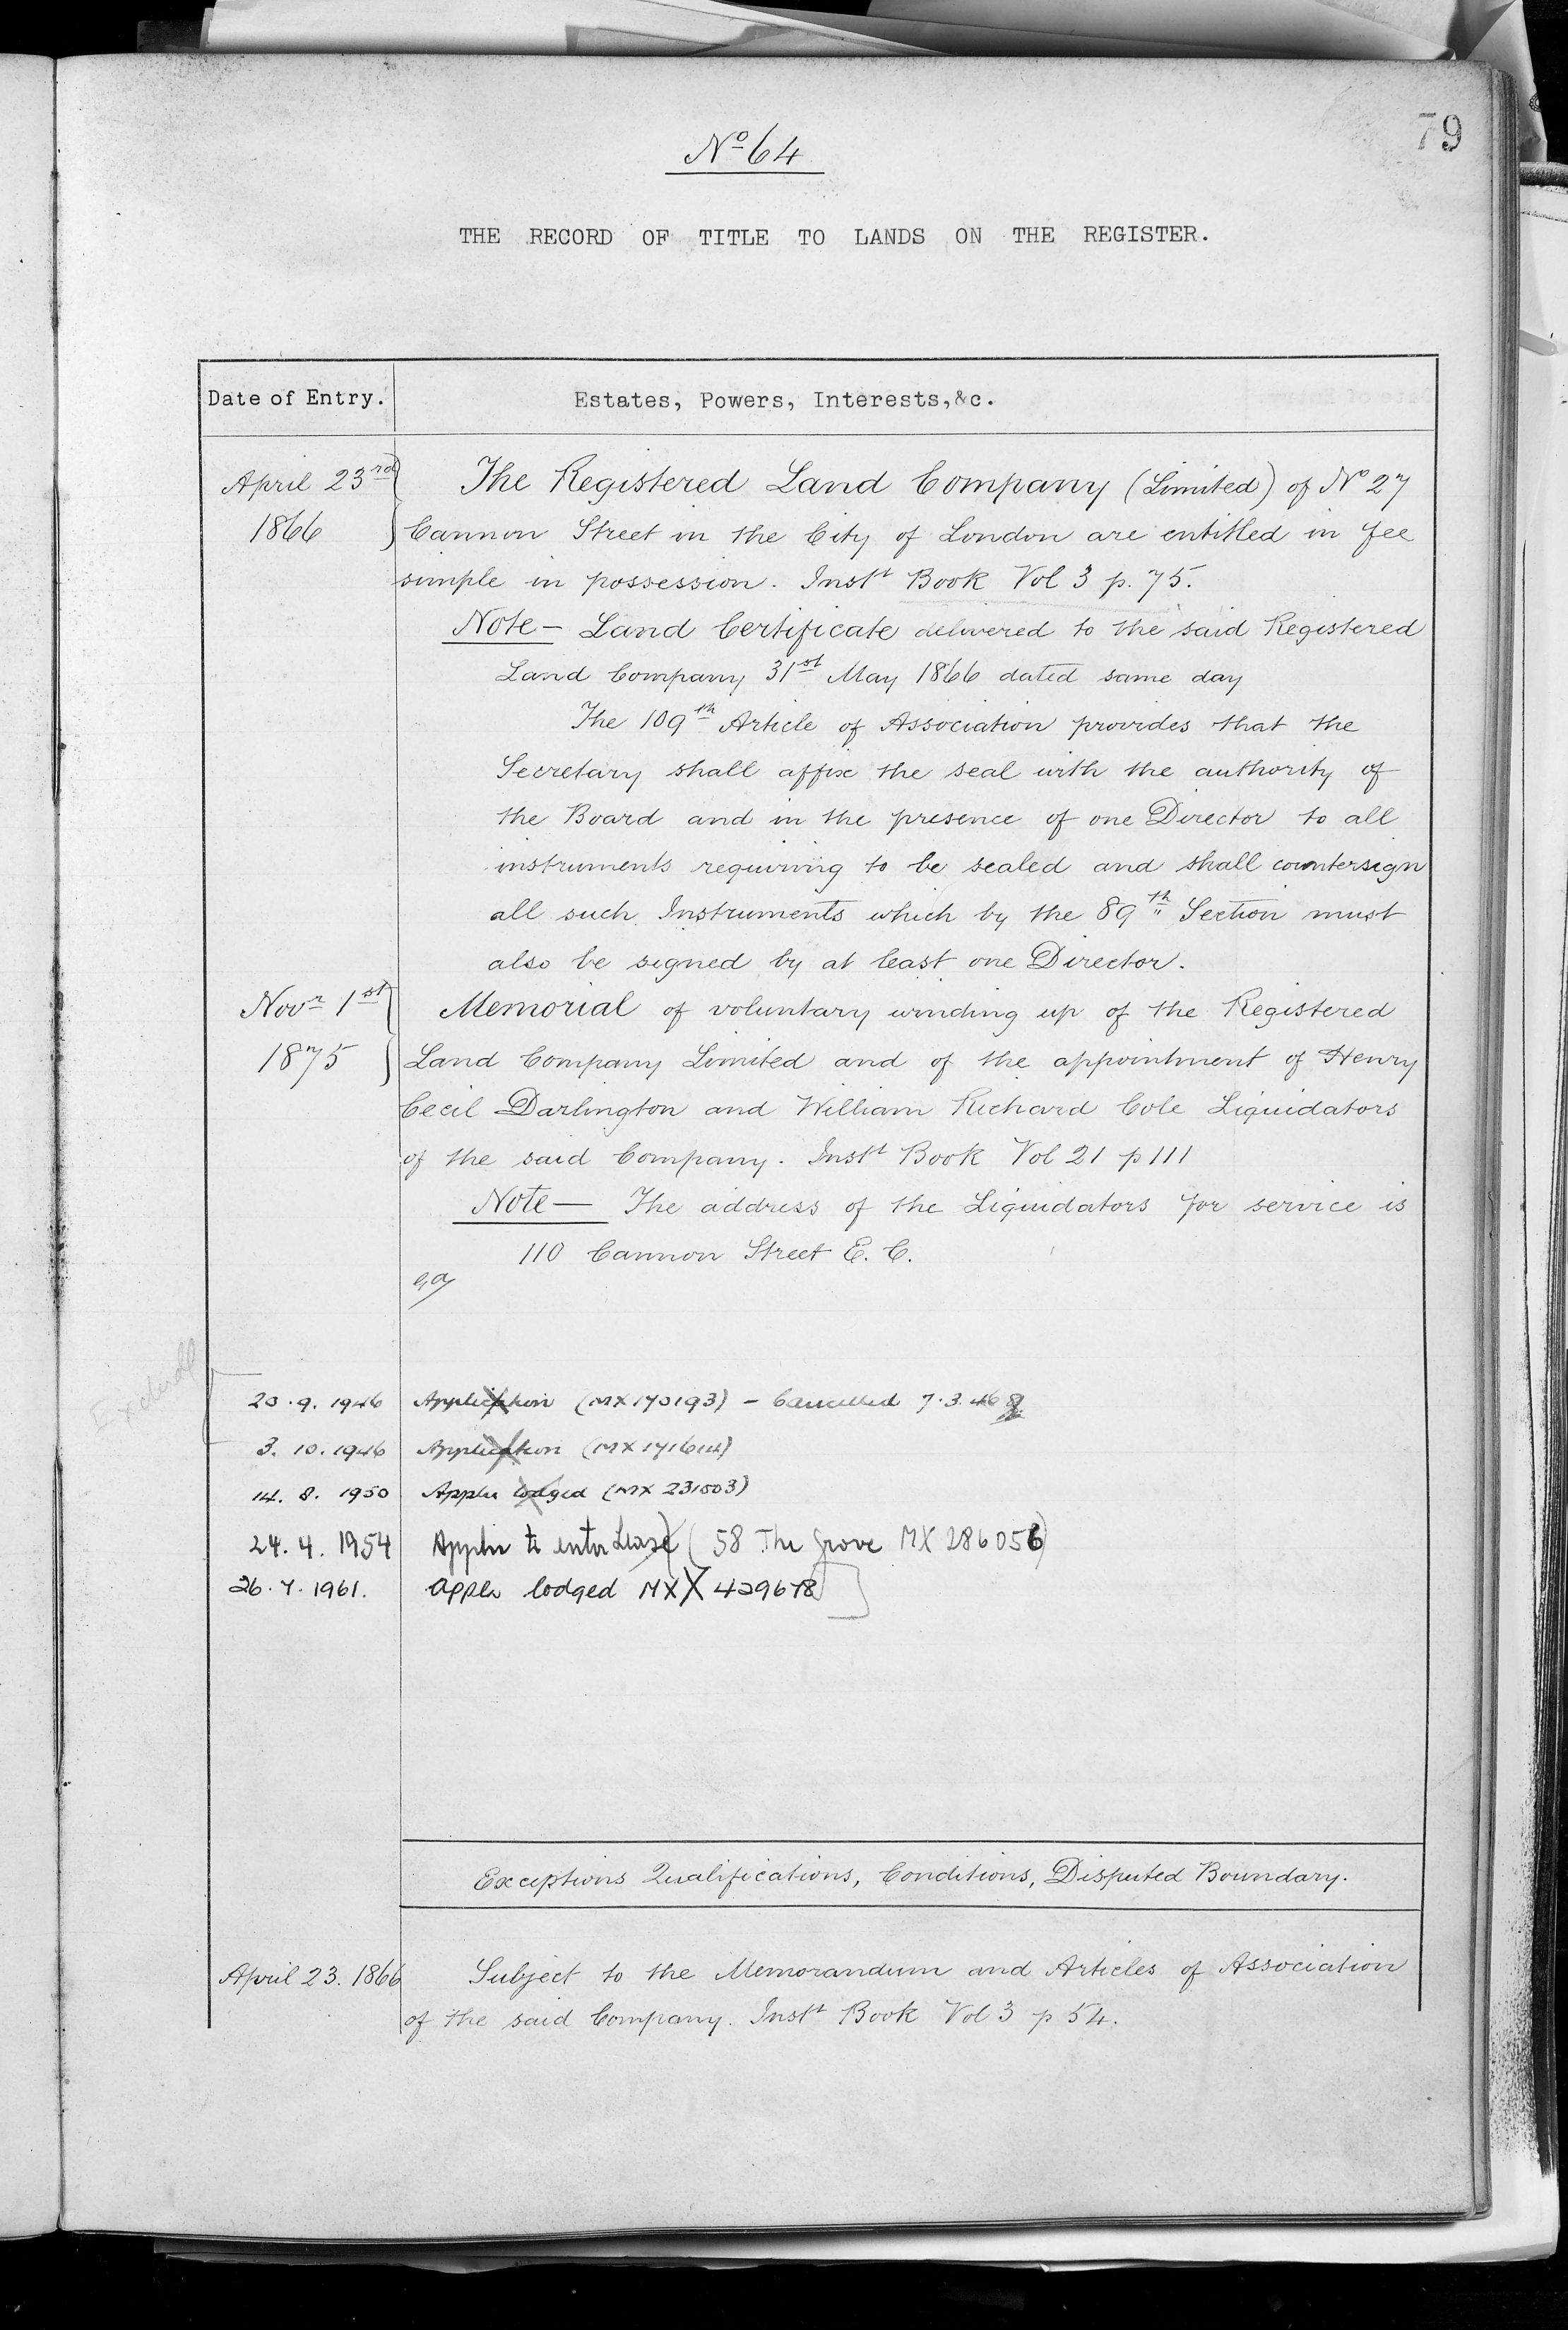 79
No 64
THE RECORD OF TITLE TO LANDS ON THE REGISTER.
Date of Entry. Estates, Powers, Interests,&c.
April 23rd The Registered Land Company (Limited) of No 27
1866 Cannon Street in the City of London are entitled in fee
simple in possession. Instt Book Vol 3 p. 75.
Note — Land Certificate delivered to the said Registered
Land Company 31st May 1866 dated same day
The 109th Article of Association provides that the
Secretary shall affix the seal with the authority of
the Board and in the presence of one Director to all
instruments requiring to be sealed and shall countersign
all such Instruments which by the 89th Section must
also be signed by at least one Director.
Novr 1st Memorial of voluntary winding up of the Registered
1875 Land Company Limited and of the appointment of Henry
Cecil Darlington and William Richard Cole Liquidators
of the said Company. Instt Book Vol 21 p 111
Note — The address of the Liquidators for service is
110 Cannon Street E. C.
20.9.1946 Application (MX170193) - Cancelled 7.3.46
3.10.1946 Application (MX171614)
14.8.1950 Appln lodged (MX 231503)
24.4.1954 Appln to enter Lease (58 The Grove MX 286056)
26.7.1961. Appln lodged MX 429678
Exceptions Qualifications, Conditions, Disputed Boundary.
April 23. 1866 Subject to the Memorandum and Articles of Association
of the said Company. Instt Book Vol 3 p 54.